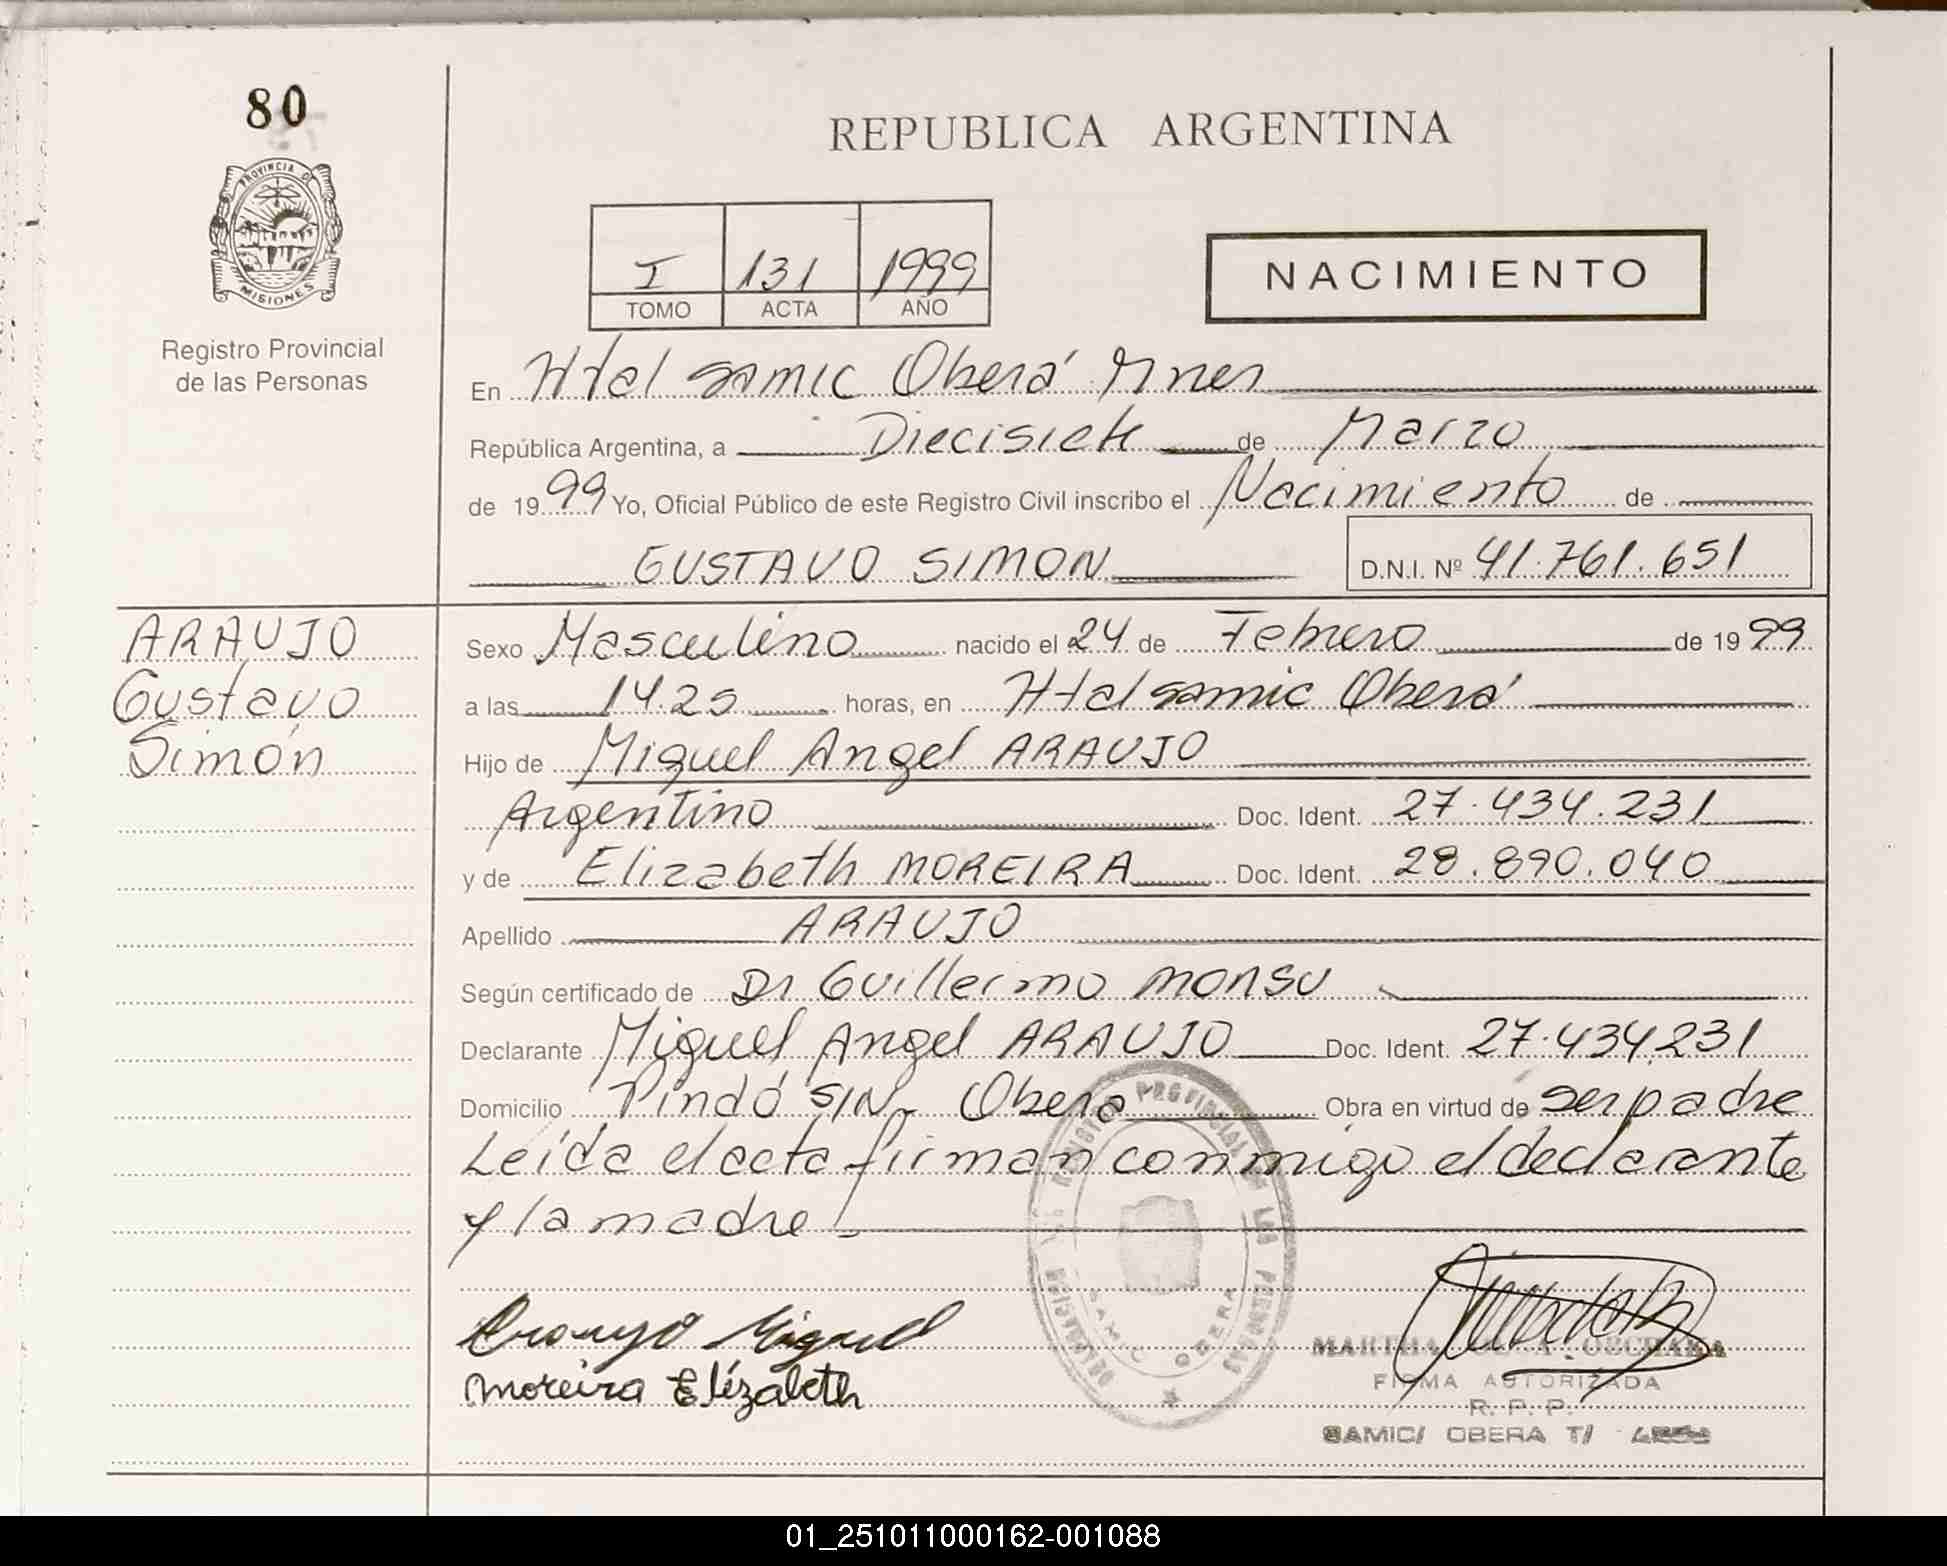 80
PROVINCIA DE
MISIONES
Registro Provincial
de las Personas
REPUBLICA ARGENTINA
I 131 1999
TOMO ACTA AÑO
NACIMIENTO
En Htal Samic Oberá Mnes
República Argentina, a Diecisiete de Marzo
de 1999 Yo, Oficial Público de este Registro Civil inscribo el Nacimiento de
GUSTAVO SIMON D.N.I. Nº 41.761.651
ARAUJO
Gustavo
Simón
Sexo Masculino nacido el 24 de Febrero de 1999
a las 14.25 horas, en Htal Samic Oberá
Hijo de Miguel Angel ARAUJO
Argentino Doc. Ident. 27.434.231
y de Elizabeth MOREIRA Doc. Ident. 28.890.040
Apellido ARAUJO
Según certificado de Dr Guillermo MONSU
Declarante Miguel Angel ARAUJO Doc. Ident. 27.434.231
Domicilio Pindó S/N. Oberá Obra en virtud de ser padre
Leída el acta firman conmigo el declarante
y la madre
Araujo Miguel
Moreira Elízabeth
SAMIC OBERA
MARTHA
FIRMA AUTORIZADA
R. P. P.
SAMIC/ OBERA T/
01_251011000162-001088